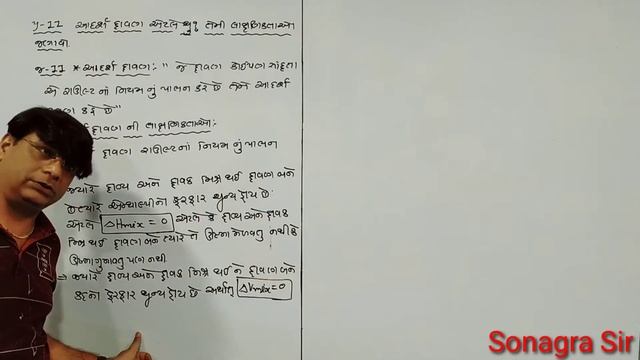 પ્ર-11 આદર્શ દ્રાવણ એટલે શું? તેની લાક્ષણિકતાઓ
જણાવો.
જ-11 * આદર્શ દ્રાવણ:- " જે દ્રાવણ કોઈપણ સાંદ્રતા
એ રાઉલ્ટનાં નિયમ નું પાલન કરે છે તેને આદર્શ
કહે છે"
દ્રાવણ ની લાક્ષણિકતાઓ:
દ્રાવણ રાઉલ્ટનાં નિયમનું પાલન
જ્યારે દ્રાવ્ય અને દ્રાવક મિશ્ર થઈ દ્રાવણ બને
છે ત્યારે એન્થાલ્પીના ફેરફાર શૂન્ય હોય છે.
એટલે ΔHmix = 0 એટલે કે દ્રાવ્ય અને દ્રાવક
મિશ્ર થઈ દ્રાવણ બને ત્યારે તે ઉષ્મા મેળવતુ નથી કે
ઉષ્મા ગુમાવતુ પણ નથી
⇒ જ્યારે દ્રાવ્ય અને દ્રાવક મિશ્ર થઈ ને દ્રાવણ બને
કદના ફેરફાર શૂન્ય હોય છે અર્થાત્ ΔVmix=0
Sonagra Sir